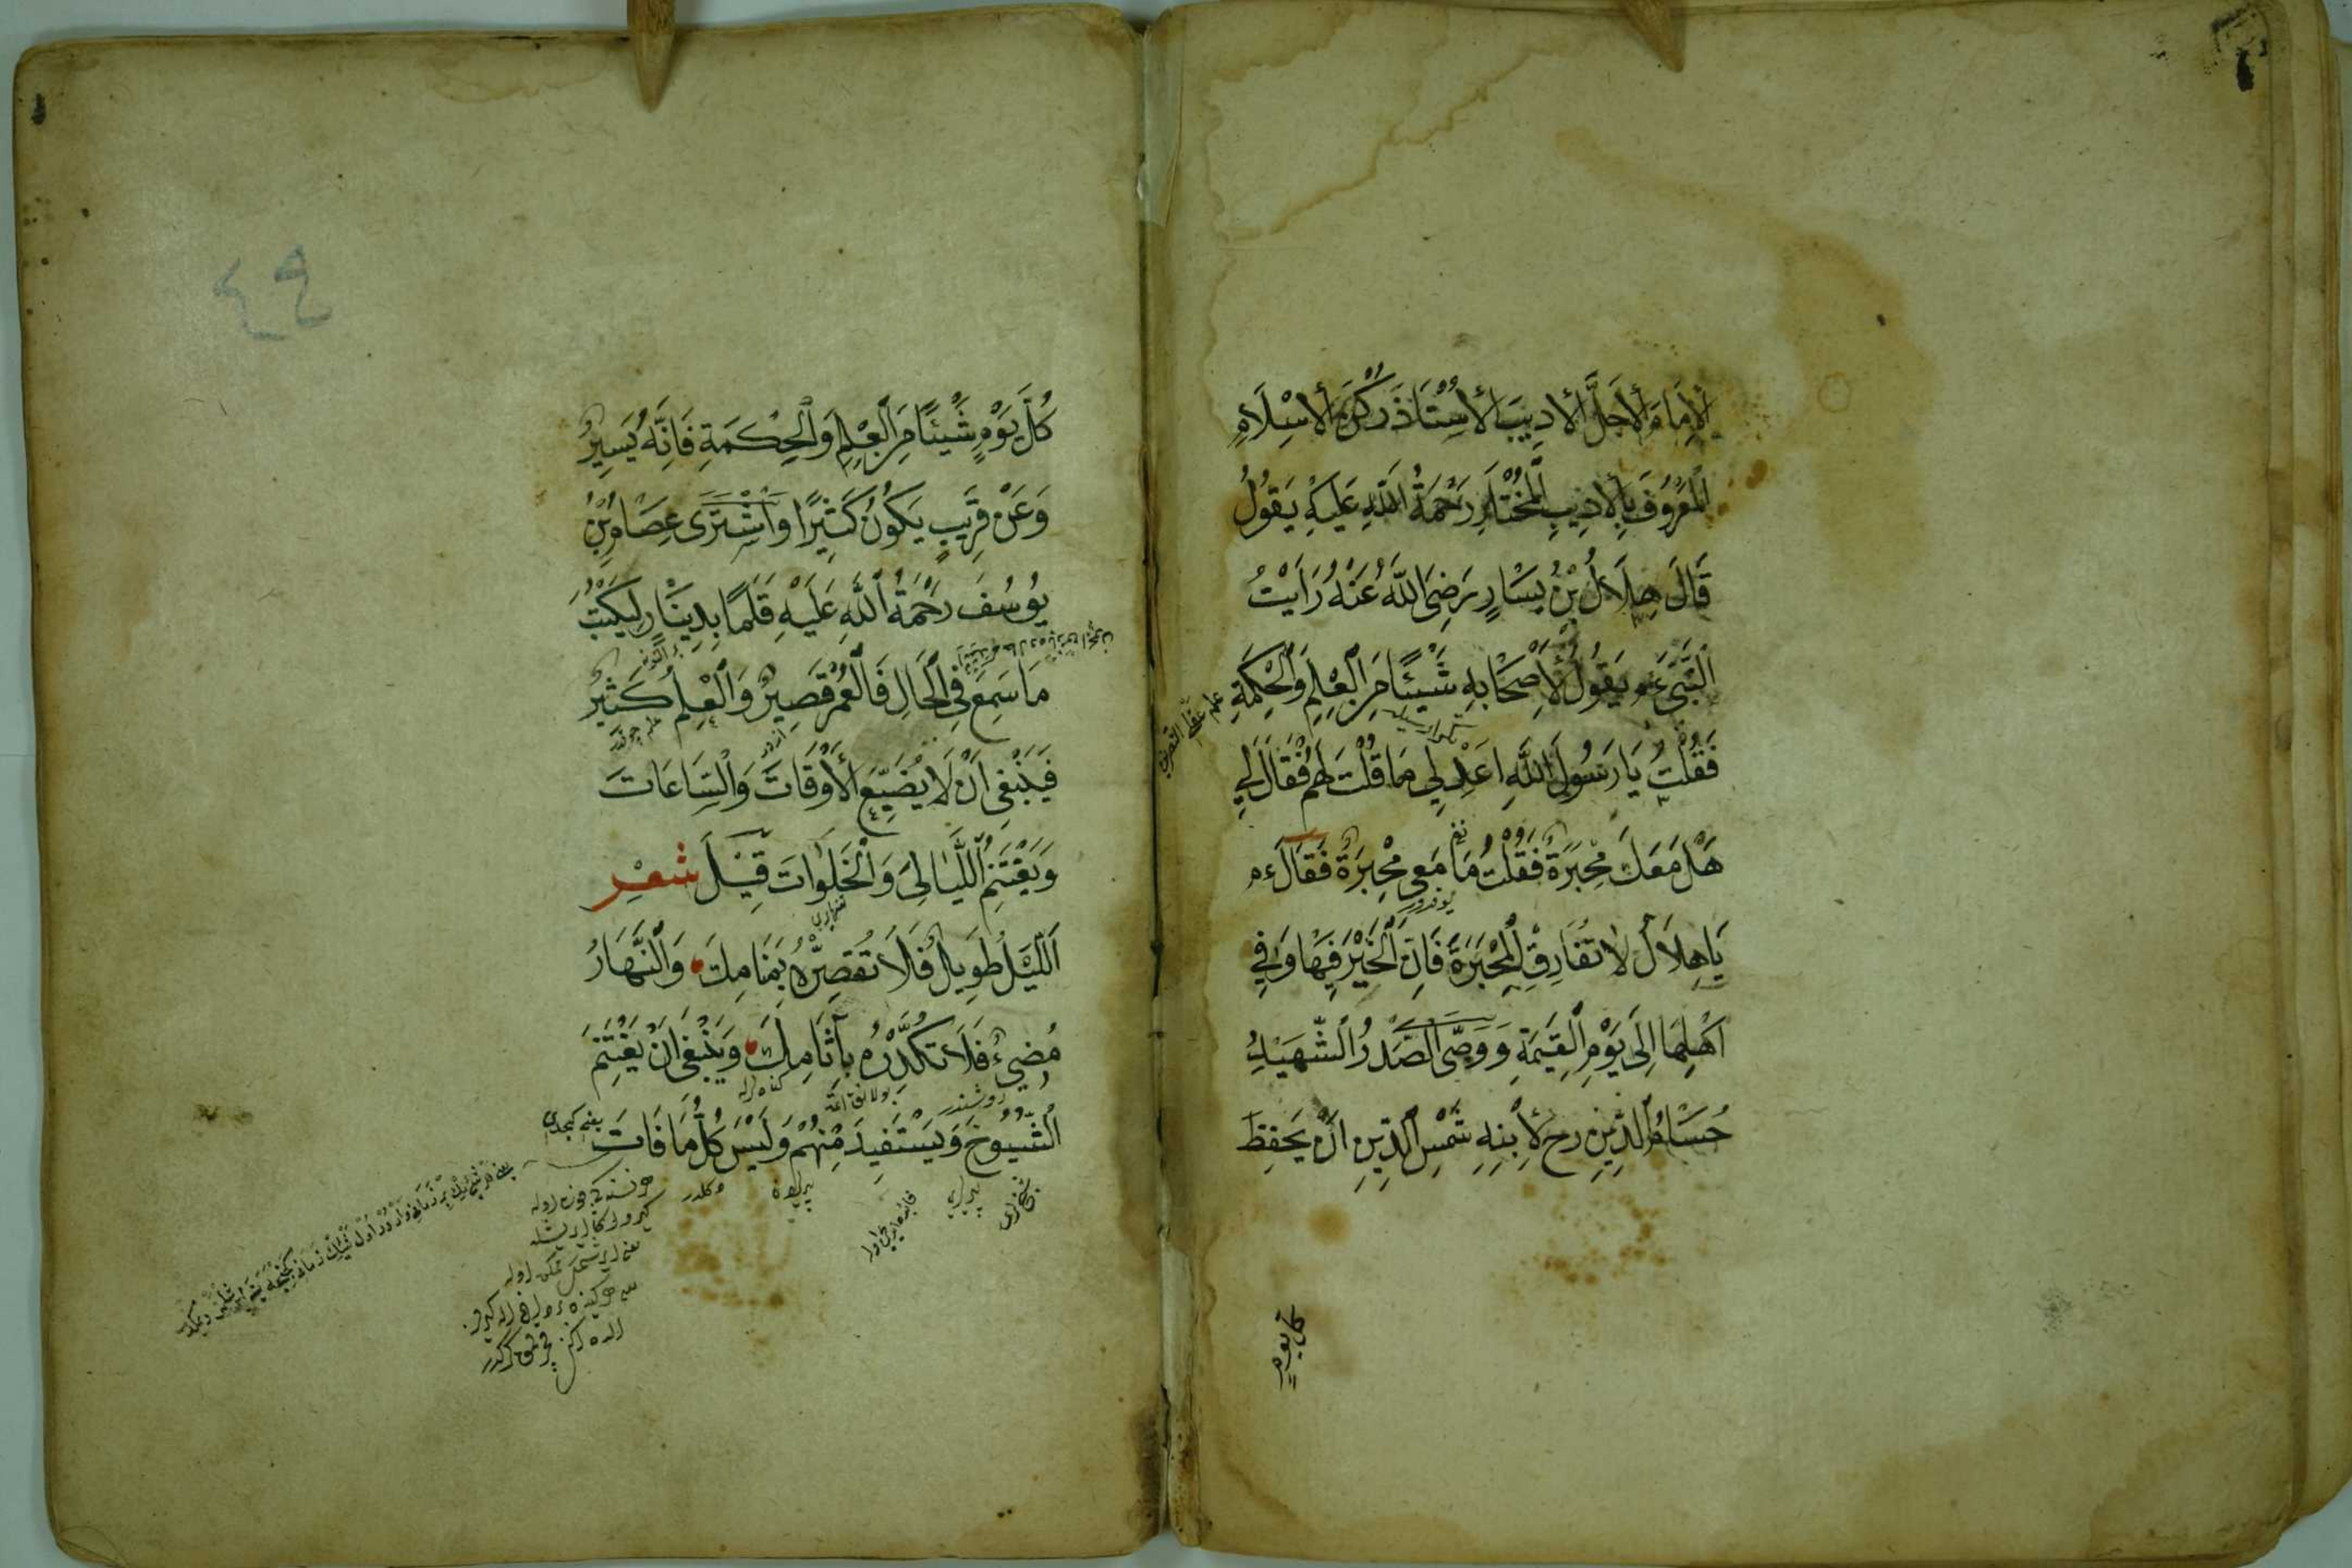 اَلْاِمَامَ الْاَجَلَّ الْاَدِيبَ الْاُسْتَاذَ رُكْنَ الْاِسْلَامِ
اَلْمَعْرُوفَ بِالْاَدِيبِ الْمُخْتَارِ رَحْمَةُ اللّٰهِ عَلَيْهِ يَقُولُ
قَالَ هِلَالُ بْنُ يَسَارٍ رَضِيَ اللّٰهُ عَنْهُ رَاَيْتُ
النَّبِيَّ عم يَقُولُ لِاَصْحَابِهِ شَيْئًا مِنَ الْعِلْمِ وَالْحِكْمَةِ
فَقُلْتُ يَا رَسُولَ اللّٰهِ اَعِدْ لِي مَا قُلْتَ لَهُمْ فَقَالَ لِي
هَلْ مَعَكَ مِحْبَرَةٌ فَقُلْتُ مَا مَعِي مِحْبَرَةٌ فَقَالَ ءم
يَا هِلَالُ لَا تُفَارِقِ الْمِحْبَرَةَ فَاِنَّ الْخَيْرَ فِيهَا وَفِي
اَهْلِهَا اِلَى يَوْمِ الْقِيٰمَةِ وَوَصَّى الصَّدْرُ الشَّهِيدُ
حُسَامُ الدِّينِ رح لِاِبْنِهِ شَمْسِ الدِّينِ اَنْ يَحْفِظَ
كل يوم
٤٩
كُلَّ يَوْمٍ شَيْئًا مِنَ الْعِلْمِ وَالْحِكْمَةِ فَاِنَّهُ يَسِيرٌ
وَعَنْ قَرِيبٍ يَكُونُ كَثِيرًا وَاشْتَرَى عِصَامُ بْنُ
يُوسُفَ رَحْمَةُ اللّٰهِ عَلَيْهِ قَلَمًا بِدِينَارٍ لِيَكْتُبَ
مَا سَمِعَ فِي الْحَالِ فَالْعُمْرُ قَصِيرٌ وَالْعِلْمُ كَثِيرٌ
فَيَنْبَغِي اَنْ لَا يُضَيِّعَ الْاَوْقَاتَ وَالسَّاعَاتَ
وَيَغْتَنِمُ اللَّيَالِيَ وَالْخَلَوَاتَ قِيلَ شعر
اَللَّيْلُ طَوِيلٌ فَلَا تُقَصِّرْهُ بِمَنَامِكَ وَالنَّهَارُ
مُضِيءٌ فَلَا تُكَدِّرْهُ بِآثَامِكَ وَيَنْبَغِي اَنْ يَغْتَنِمَ
الشُّيُوخَ وَيَسْتَفِيدَ مِنْهُمْ وَلَيْسَ كُلُّ مَا فَاتَ